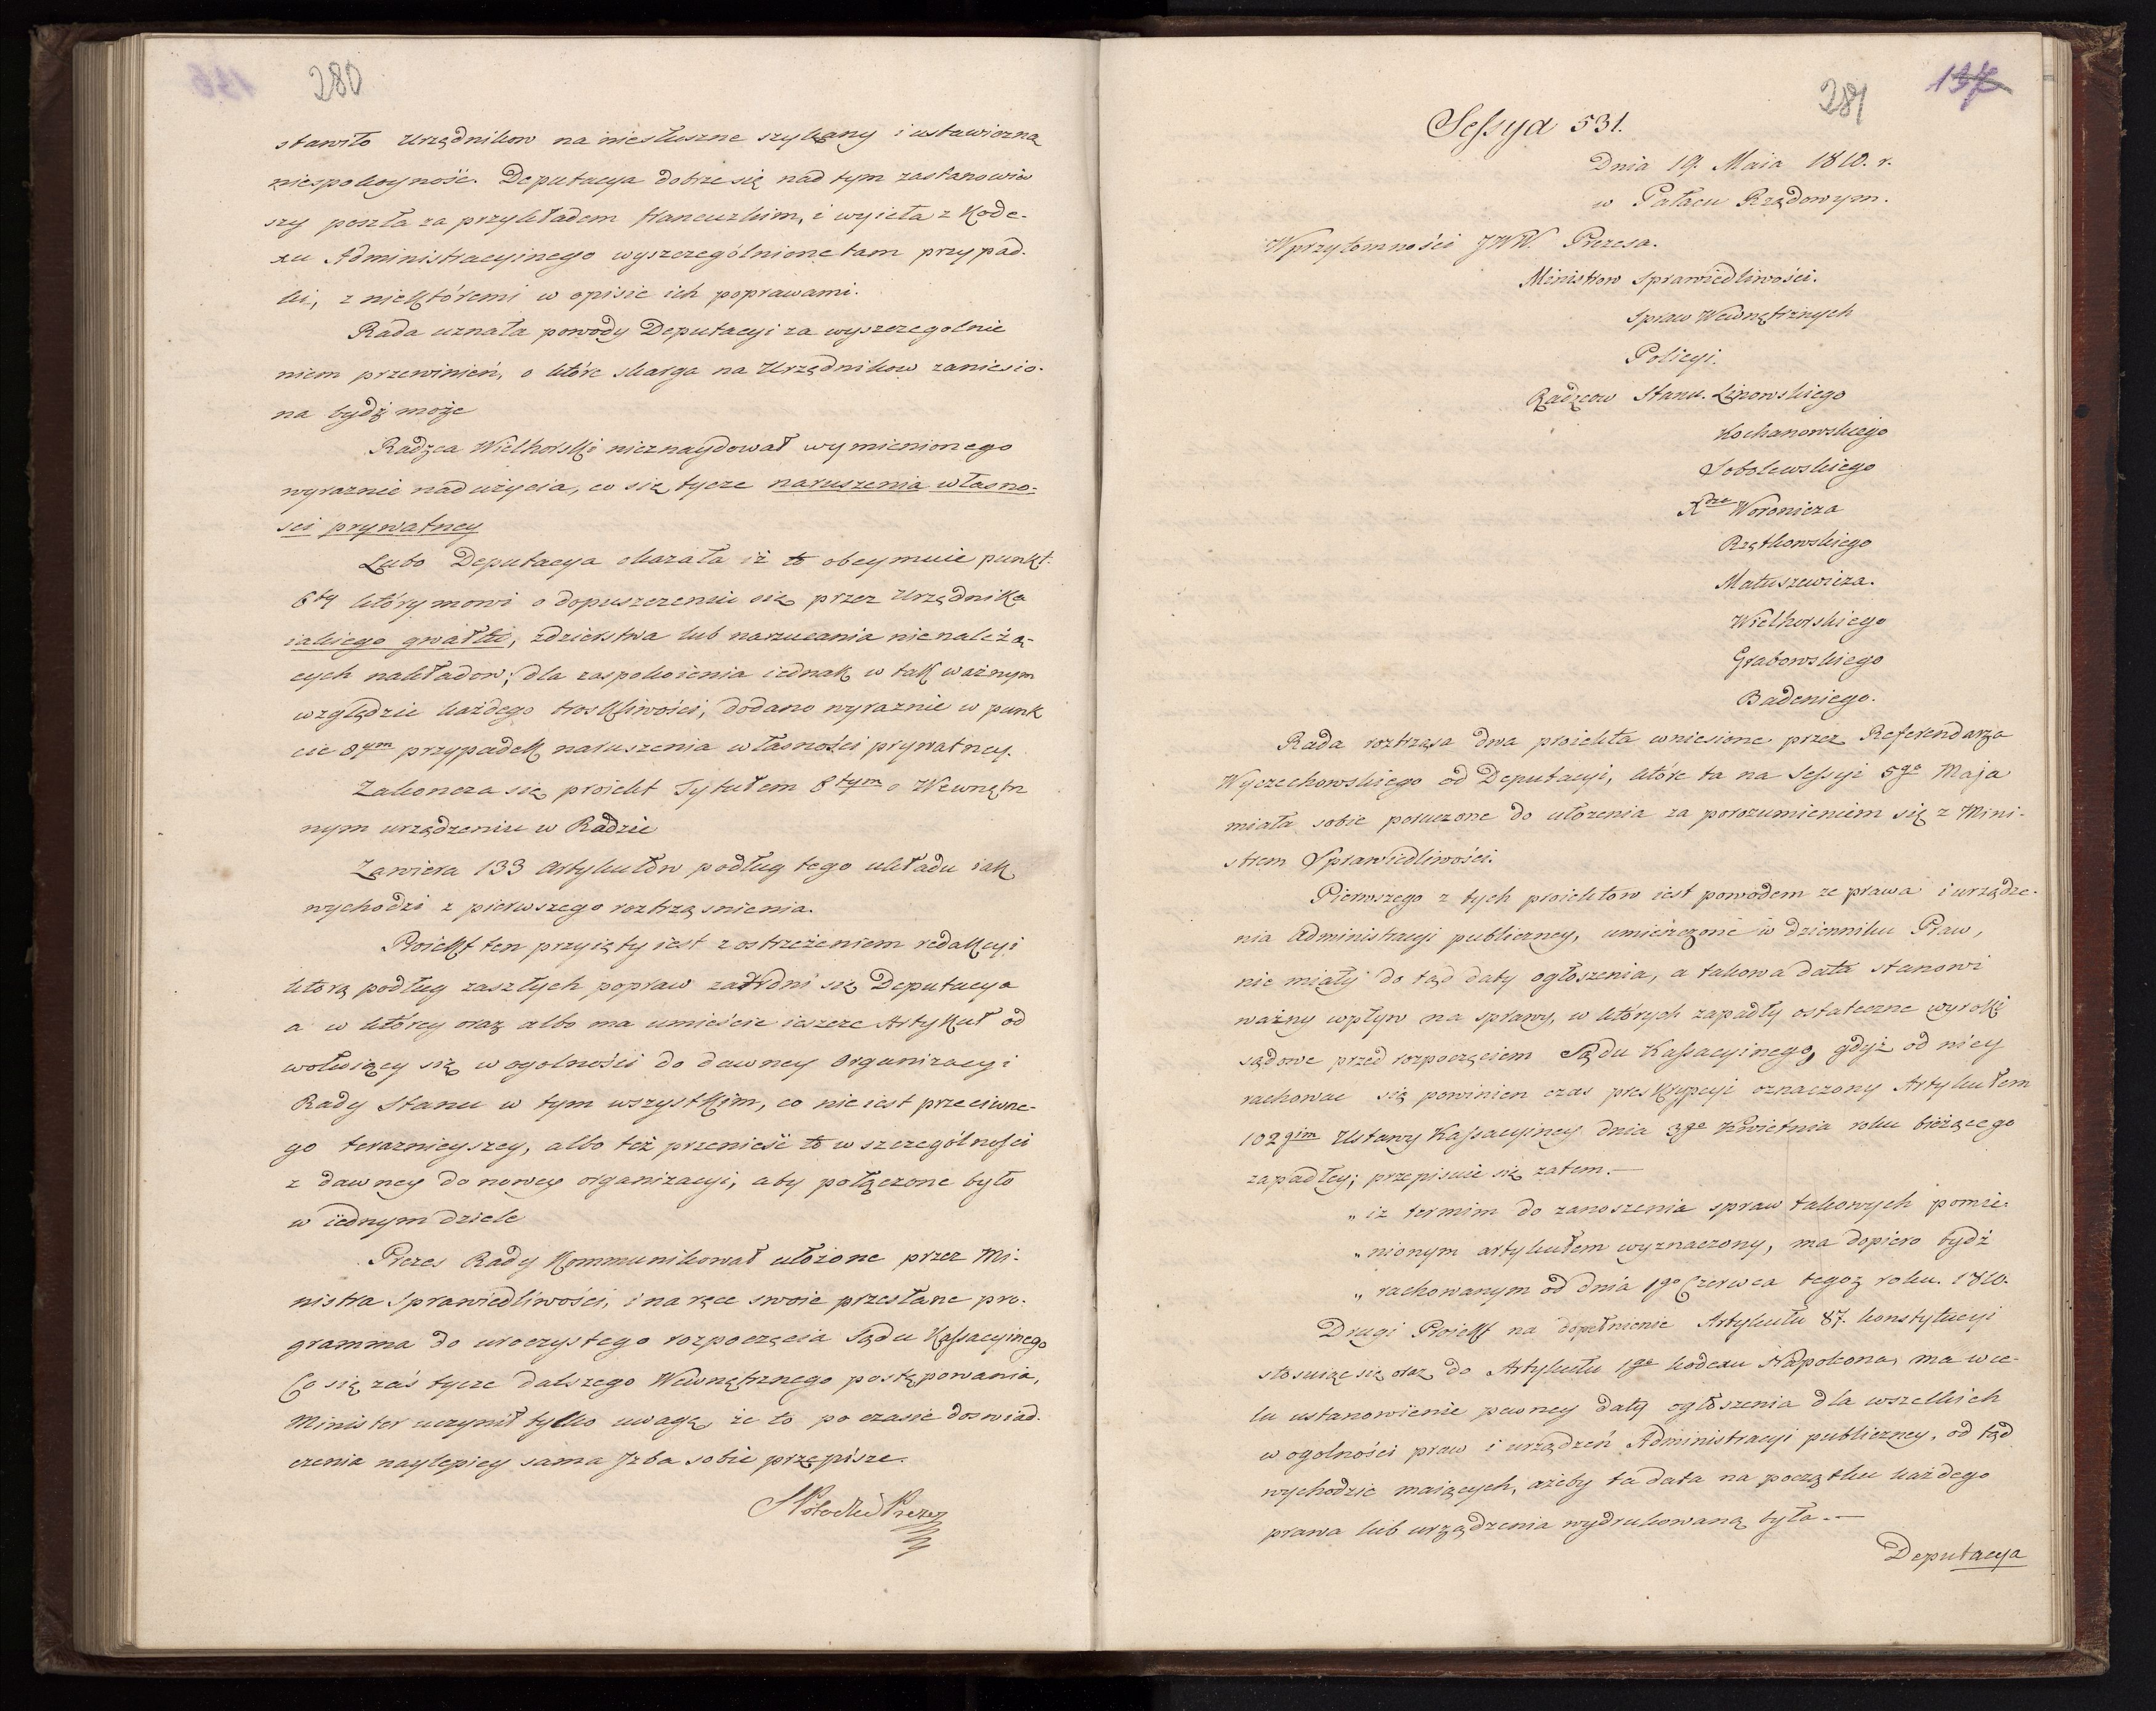 280
stawiło Urzędnikow na niesłuszne szykany i ustawiczną
niespokoyność. Deputacya dobrze się nad tym zastanowiw
szy poszła za przykładem francuzkim, i wyięła z Kode-
xu Administracyinego wyszczególnione tam przypad-
ki, z niektóremi w opisie ich poprawami.
Rada uznała powody Deputacyi za wyszczegolnie
niem przewinień, o które skarga na Urzędnikow zaniesio-
na bydź może
Radzca Wielhorski nieznaydował wymienionego
wyraznie nadużycia, co się tycze naruszenia własno-
sci prywatney
Lubo Deputacya okazała iż to obeymuie punkt
6ty który mowi o dopuszczeniu się przez Urzędnika
iakiego gwałtu, zdzierstwa lub narzucania nienależą-
cych nakładow; dla zaspokoienia iednak w tak ważnym
względzie każdego troskliwości, dodano wyraznie w punk
cie 8ym przypadek naruszenia własności prywatney.
Zakoncza się proiekt Tytułem 8tym o Wewnętrz
nym urządzeniu w Radzie
Zawiera 133 Artykułów podług tego układu iak
wychodzi z pierwszego roztrząsnienia.
Proiekt ten przyięty iest z ostrzeżeniem redakcyi
którą podług zaszłych popraw zatrudni się Deputacya
a w którey oraz albo ma umieścić ieszcze Artykuł od
wołuiący się w ogolności do dawney Organizacyi
Rady Stanu w tym wszystkim, co nie iest przeciwne-
go teraznieyszey, albo też przenieść to w szczególności
z dawney do nowey organizacyi, aby połączone było
w iednym dziele
Prezes Rady Kommunikował ułożone przez Mi-
nistra Sprawiedliwości, i na ręce swoie przesłane pro-
gramma do uroczystego rozpoczęcia Sądu Kassacyinego
Co się zaś tycze dalszego Wewnętrznego postępowania,
Minister uczynił tylko uwagę, że to po czasie doswiad-
czenia naylepiey sama Jzba sobie przepisze.
SPotocki Prezes
281
137
Sessya 531.
Dnia 19. Maia 1810. r.
w Pałacu Rządowym.
W przytomności JWW. Prezesa.
Ministrow Sprawiedliwości.
Spraw Wewnętrznych
Policyi.
Radzcow Stanu. Linowskiego
Kochanowskiego
Sobolewskiego
Xdza Woronicza
Rzętkowskiego
Matuszewicza.
Wielhorskiego
Grabowskiego
Badeniego.
Rada roztrząsa dwa proiekta wniesione przez Referendarza
Wyczechowskiego od Deputacyi, które ta na Sessyi 5go Maja
miała sobie poruczone do ułożenia za porozumieniem się z Mini-
strem Sprawiedliwości.
Pierwszego z tych proiektow iest powodem że prawa i urządze-
nia Administracyi publiczney, umieszczone w dzienniku Praw,
nie miały do tąd daty ogłoszenia, a takowa data stanowi
ważny wpływ na sprawy, w których zapadły ostateczne wyroki
sądowe przed rozpoczęciem Sądu Kassacyinego, gdyż od niey
rachować się powinien czas preskrypcyi oznaczony Artykułem
102gim Ustawy Kassacyiney dnia 3go Kwietnia roku bieżącego
zapadłey; przepisuie się zatem. —
„ iż termim do zanoszenia spraw takowych pomie-
„ nionym artykułem wyznaczony, ma dopiero bydź
„ rachowanym od dnia 1go Czerwca tegoz roku. 1810.
Drugi Proiekt na dopełnienie Artykułu 87. konstytucyi
stosuiąc się oraz do Artykułu 1go kodexu Napoleona, ma w ce-
lu ustanowienie pewney daty ogłoszenia dla wszelkich
w ogolności praw i urządzeń Administracyi publiczney, od tąd
wychodzić maiących, ażeby ta data na początku każdego
prawa lub urządzenia wydrukowaną była. —
Deputacya